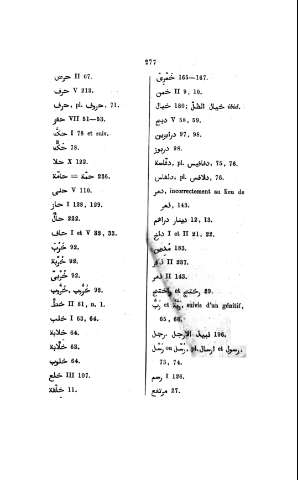 277
حرس II 67.
حرف V 213.
حرف, pl. حروف, 71.
حفر VII 51—53.
حكّ I 78 et suiv.
حكّ 78.
حلا X 122.
حمّة = حامّة 236.
حنى V 110.
حاز I 128, 129.
حال 222.
حاف I et V 32, 33.
خَرْبَ 92.
خُرْبَة 92.
خُرْبَى 92.
خَرُّيب, خُرَّيب 92.
خطّ II 81, n. 1.
خلب I 63, 64.
خلابة 64.
خَلَّابة 63.
خلوب 64.
خلع III 107.
خلفة 11.
خَمْرِىّ 165—167.
خمن II 9, 10.
خيال 180; خيال الظلّ ibid.
دبج V 58, 59.
درابزين 97, 98.
دربوز 98.
دفّاسة, pl. دفافيس, 75, 76.
دلفاس, pl. دلافس, 76.
دعر, incorrectement au lieu de
ذعر, 143.
دينار دراهم 12, 13.
دلج I et II 21, 22.
183.
II 287.
ذعر II 143.
et 29.
رُبَّ et رُبَّةَ, suivis d'un génitif,
65, 66.
رجل, نبيل الارجل 196.
رُسُل ou رُسْل, pl. ارسال et رسول,
73, 74.
رسم I 126.
مرتفع 27.